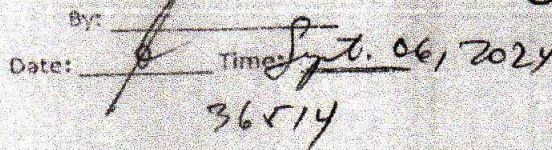 By:
Date: Time: Sept. 06, 2024
36514